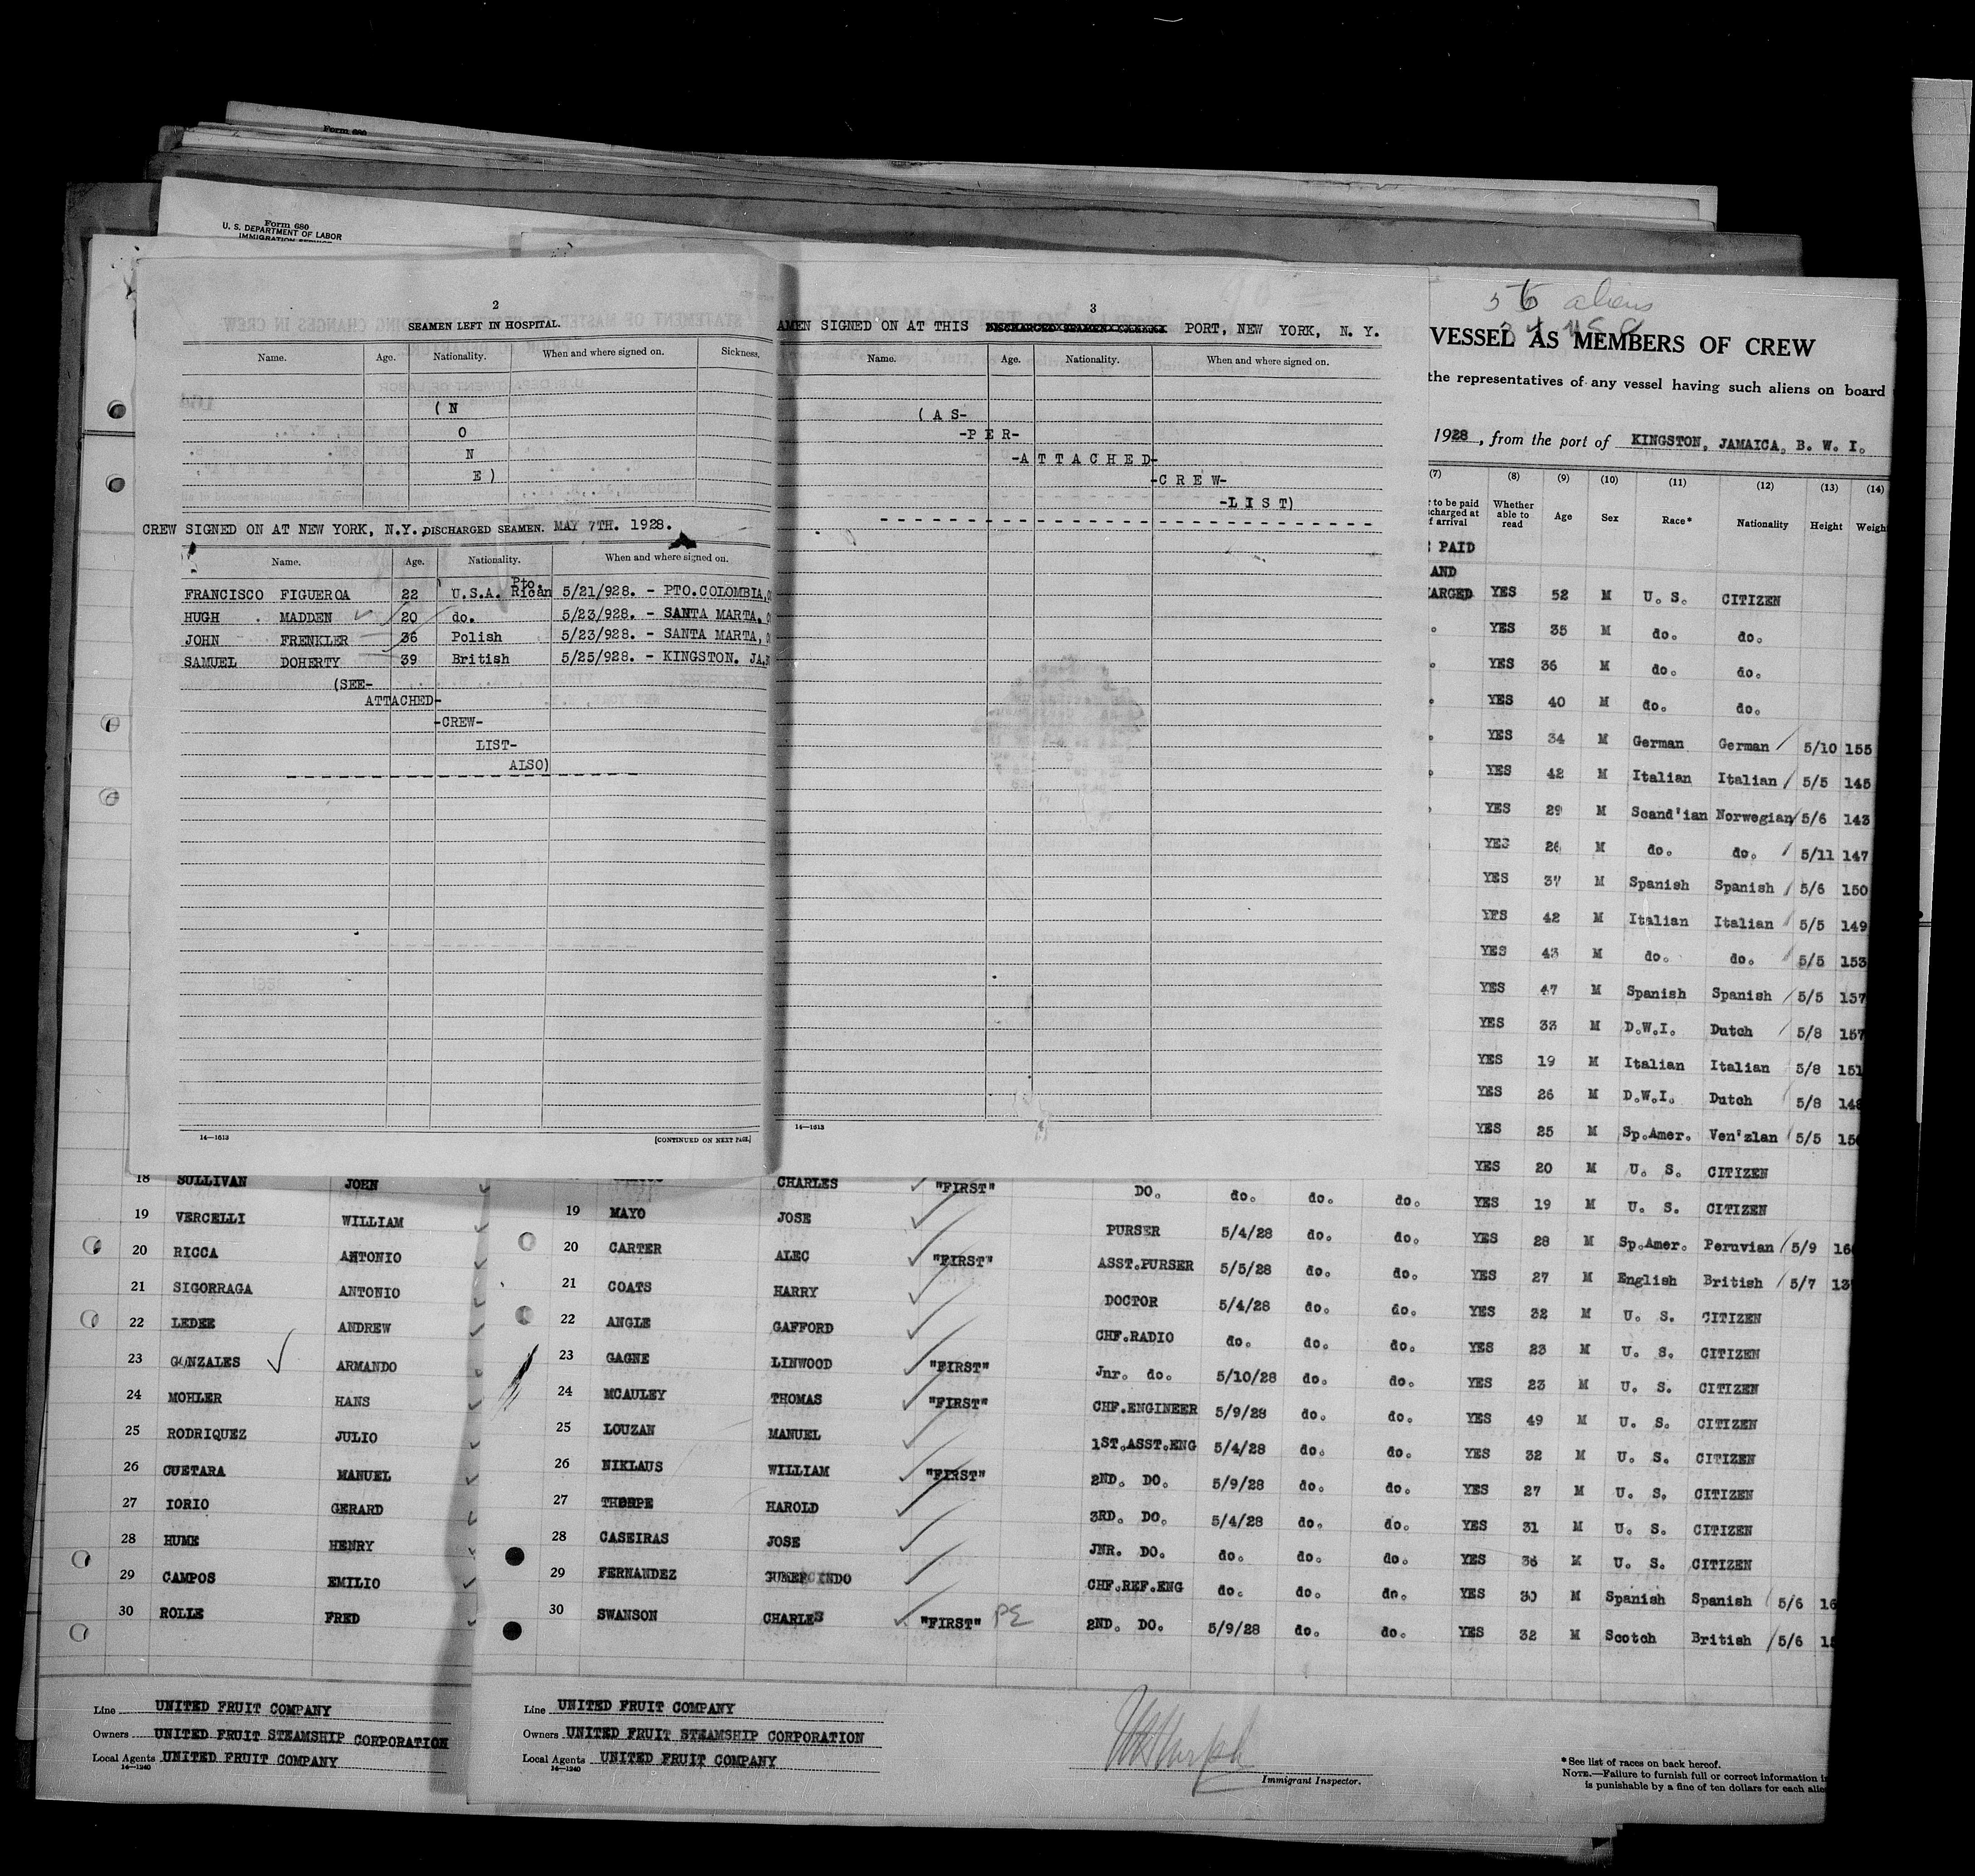 Form 680
Form 680
U. S. DEPARTMENT OF LABOR
IMMIGRATION SERVICE
2
SEAMEN LEFT IN HOSPITAL.
Name. Age. Nationality. When and where signed on. Sickness.
( N
O
N
E )
CREW SIGNED ON AT NEW YORK, N.Y., DISCHARGED SEAMEN. MAY 7TH. 1928.
Name. Age. Nationality. When and where signed on.
FRANCISCO FIGUEROA 22 U.S.A. Pto. Rican 5/21/928. - PTO.COLOMBIA,
HUGH . MADDEN 20 do. 5/23/928. - SANTA MARTA,
JOHN FRENKLER 36 Polish 5/23/928. - SANTA MARTA,
SAMUEL DOHERTY 39 British 5/25/928. - KINGSTON. JA.
(SEE-
ATTACHED-
-CREW-
LIST-
ALSO)
14—1613 [CONTINUED ON NEXT PAGE.]
3
AMEN SIGNED ON AT THIS PORT, NEW YORK, N. Y.
Name. Age. Nationality. When and where signed on.
( A S-
-P E R-
-A T T A C H E D-
-C R E W-
-L I S T)
14—1613
56 aliens
34 USC
VESSEL AS MEMBERS OF CREW
the representatives of any vessel having such aliens on board
1928, from the port of KINGSTON, JAMAICA, B. W. I.
(7) (8) (9) (10) (11) (12) (13) (14)
to be paid
charged at
f arrival
Whether able to read Age Sex Race* Nationality Height Weigh
PAID
AND
ARGED YES 52 M U. S. CITIZEN
YES 35 M do. do.
YES 36 M do. do.
YES 40 M do. do.
YES 34 M German German 5/10 155
YES 42 M Italian Italian 5/5 145
YES 29 M Scand'ian Norwegian 5/6 143
YES 26 M do. do. 5/11 147
YES 37 M Spanish Spanish 5/6 150
YES 42 M Italian Italian 5/5 149
YES 43 M do. do. 5/5 153
YES 47 M Spanish Spanish 5/5 157
YES 33 M D.W.I. Dutch 5/8 157
YES 19 M Italian Italian 5/8 151
YES 26 M D.W.I. Dutch 5/8 148
YES 25 M Sp.Amer. Ven'zlan 5/5 15
YES 20 M U. S. CITIZEN
DO. do. do. do. YES 19 M U. S. CITIZEN
PURSER 5/4/28 do. do. YES 28 M Sp.Amer. Peruvian 5/9 16
ASST.PURSER 5/5/28 do. do. YES 27 M English British 5/7 13
DOCTOR 5/4/28 do. do. YES 32 M U. S. CITIZEN
CHF.RADIO do. do. do. YES 23 M U. S. CITIZEN
Jnr. do. 5/10/28 do. do. YES 23 M U. S. CITIZEN
CHF.ENGINEER 5/9/28 do. do. YES 49 M U. S. CITIZEN
1ST.ASST.ENG 5/4/28 do. do. YES 32 M U. S. CITIZEN
2ND. DO. 5/9/28 do. do. YES 27 M U. S. CITIZEN
3RD. DO. 5/4/28 do. do. YES 31 M U. S. CITIZEN
JNR. DO. do. do. do. YES 36 M U. S. CITIZEN
CHF.REF.ENG do. do. do. YES 30 M Spanish Spanish 5/6 16
2ND. DO. 5/9/28 do. do. YES 32 M Scotch British 5/6 1
18 SULLIVAN JOHN
19 VERCELLI WILLIAM
20 RICCA ANTONIO
21 SIGORRAGA ANTONIO
22 LEDEE ANDREW
23 GONZALES ARMANDO
24 MOHLER HANS
25 RODRIQUEZ JULIO
26 CUETARA MANUEL
27 IORIO GERARD
28 HUME HENRY
29 CAMPOS EMILIO
30 ROLLE FRED
CHARLES "FIRST"
19 MAYO JOSE
20 CARTER ALEC "FIRST"
21 COATS HARRY
22 ANGLE GAFFORD
23 GAGNE LINWOOD "FIRST"
24 MCAULEY THOMAS "FIRST"
25 LOUZAN MANUEL
26 NIKLAUS WILLIAM "FIRST"
27 THORPE HAROLD
28 CASEIRAS JOSE
29 FERNANDEZ GUMERCINDO
30 SWANSON CHARLES "FIRST" PE
Line UNITED FRUIT COMPANY
Owners UNITED FRUIT STEAMSHIP CORPORATION
Local Agents UNITED FRUIT COMPANY
14—1240
Line UNITED FRUIT COMPANY
Owners UNITED FRUIT STEAMSHIP CORPORATION
Local Agents UNITED FRUIT COMPANY
14—1240
Immigrant Inspector.
*See list of races on back hereof.
NOTE.—Failure to furnish full or correct information i
is punishable by a fine of ten dollars for each alie